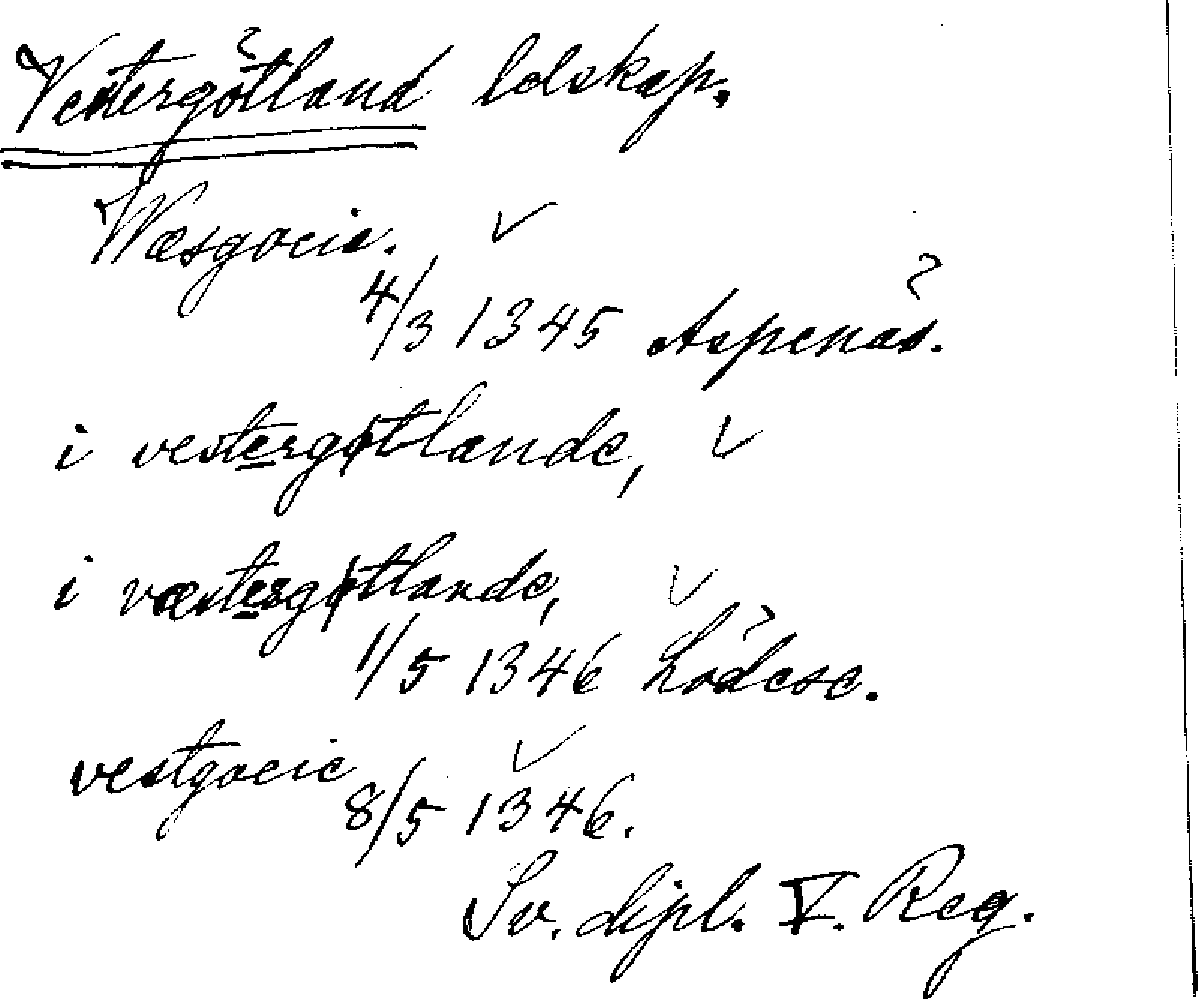 Vestergötland ldskap.
Wæsgocia. ✓
4/3 1345 Aspenäs.
i vestergøtlande, ✓
i væstergøtlande, ✓
1/5 1346 Lödese.
vestgocie ✓
8/5 1346.
Sv. dipl. V. Reg.